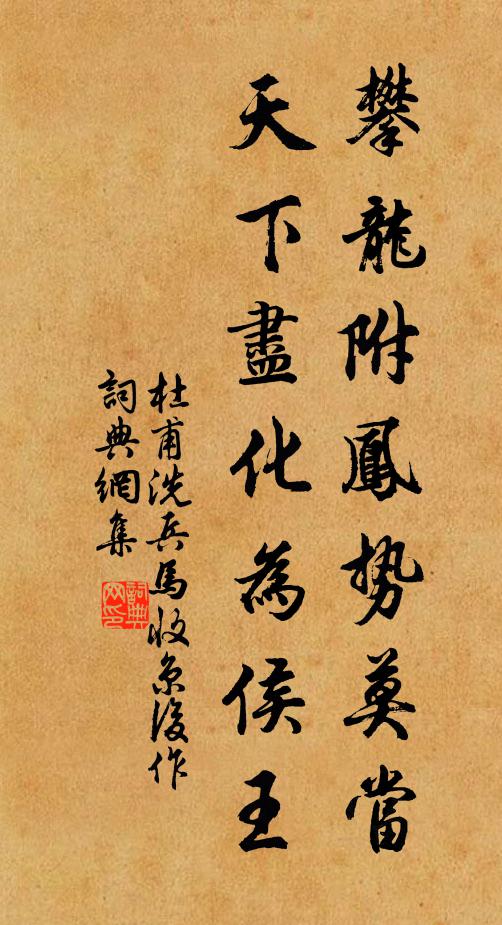 攀龍附鳳勢莫當
天下盡化為侯王
杜甫洗兵馬收京後作
詞典網集
詞典网印